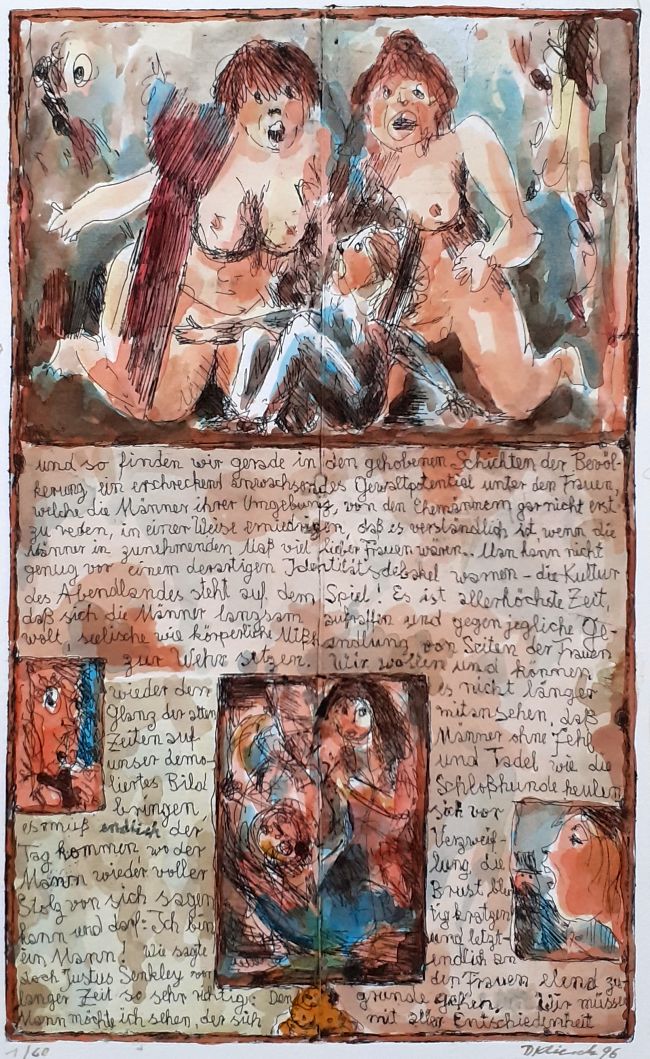 und so finden wir gerade in den gehobenen Schichten der Bevöl-
kerung ein erschreckend anwachsendes Gewaltpotential unter den Frauen,
welche die Männer ihrer Umgebung, von den Ehemännern gar nicht erst
zu reden, in einer Weise erniedrigen, daß es verständlich ist, wenn die
Männer in zunehmenden Maß viel lieber Frauen wären. Man kann nicht
genug vor einem derartigen Identitätsdebakel warnen – die Kultur
des Abendlandes steht auf dem Spiel! Es ist allerhöchste Zeit,
daß sich die Männer langsam aufraffen und gegen jegliche Ge-
walt, seelische wie körperliche Mißhandlung von Seiten der Frauen
zur Wehr setzen. Wir wollen und können
es nicht länger
mitansehen, daß
Männer ohne Fehl
und Tadel wie die
Schloßhunde heulen
sich vor
Verzweif-
lung die
Brust blu-
tig kratzen
und letzt-
endlich an
den Frauen elend zu
grunde gehen. Wir müssen
mit aller Entschiedenheit
wieder den
Glanz der alten
Zeiten auf
unser demo-
liertes Bild
bringen,
es muß endlich der
Tag kommen wo der
Mann wieder voller
Stolz von sich sagen
kann und darf: Ich bin
ein Mann. Wie sagte
doch Justus Senkley vor
langer Zeit so sehr richtig: Den
Mann möchte ich sehen, der sich
1/60
96